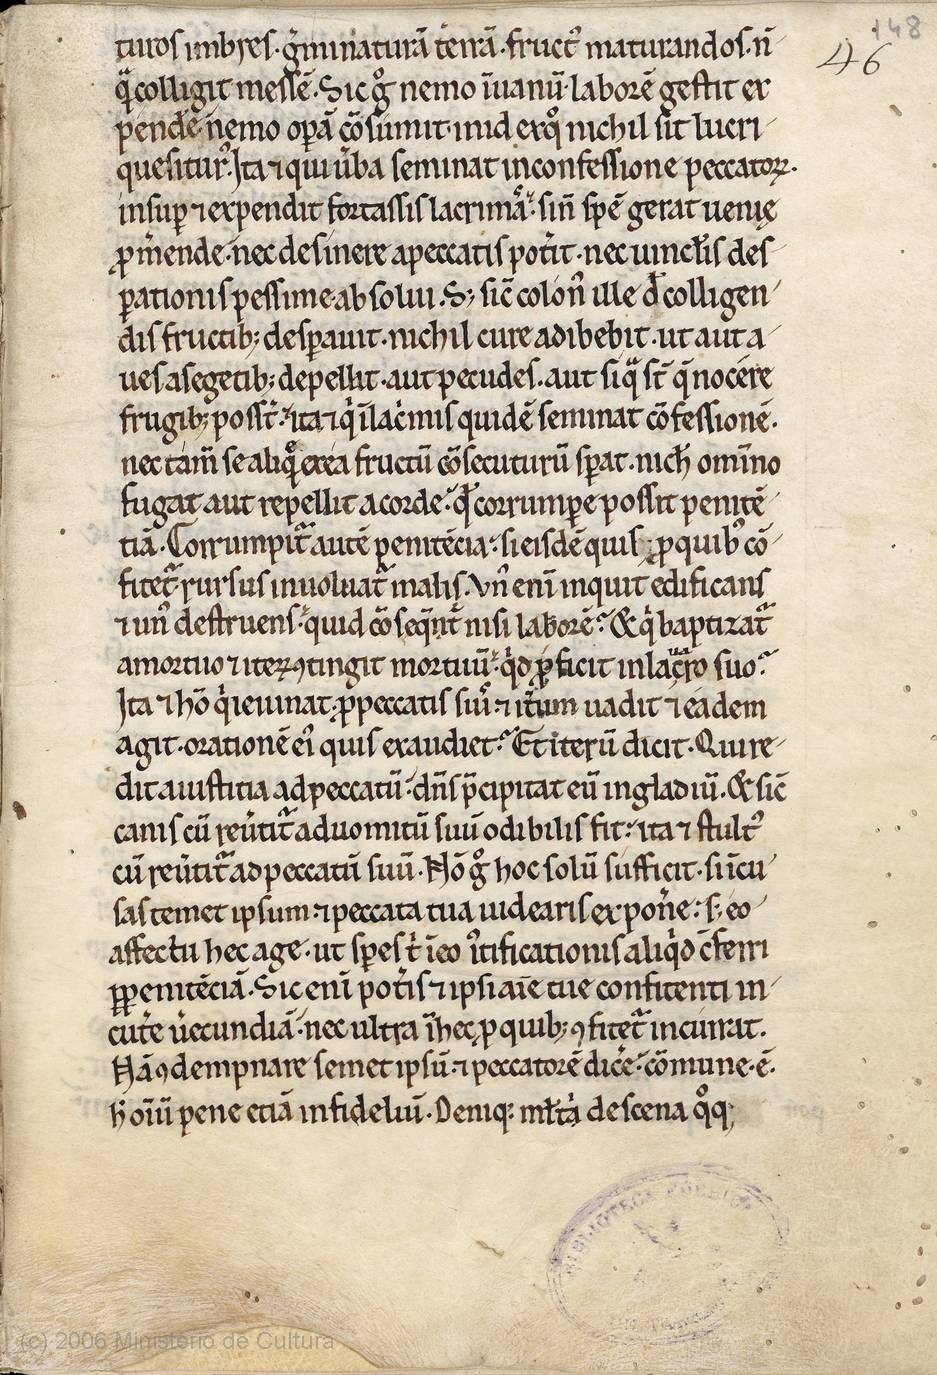 148
46
turos imbres · g̃minaturā t̃errā · fruct᷒ maturandos · n̄
q̈ colligit messē · Sic g̊ nemo īuanū · laborē gestit ex
pendẽ · nemo operā cōsumit · inid ex q̊ nichil sit lucri
quesitur᷒ · Ita ⁊ qui ũba seminat inconfessione peccatoꝝ ·
insup ⁊ expendit fortassis lacrimā · sin̄ spē gerat uenię
ꝓm̃ende · nec desinere apeccatis potĩt · nec uinclis des
ꝑationis pessime absolui · S; sic̄ colon᷒ ille d̄ colligen
dis fructib; despauit · nichil cure adibebit · ut aut a
ues asegetib; depellit · aut pecudes · aut siq̈ st̄ q̄ nocere
frugib; possт̄ · ita ⁊ q̇ īlac̃mis quidē seminat cōfessionē ·
nec tam̄ se aliq̊ exea fructū cōsecuturū sꝑat · nich̄ omīno
fugat aut repellit acorde · qđ corrumpe possit penitē
tiā · Corrumpit̃ autē penitēcia · si eisdē quis ꝓ quib᷒ cō
fitet̃ · rursus inuoluat̃ malis · Vn᷒ enī inquit edificans
⁊ un᷒ destruens · quid cōseq̄nt̃ nisi laborē · & q̇ baptizat̃
amortuo ⁊ iteꝝ ꝯtingit mortuū · q̇d ꝓficit inlauac̃ro suo ·
Ita ⁊ hō q̇ ieiunat ꝓ peccatis suis · ⁊ it̃um uadit ⁊ eadem
agit · orationē ei᷒ quis exaudiet · Et iterū dicit · Qui re
dit aiustitia adpeccatū · dn̄s p̄cipitat eū ingladiū · & sic̄
canis cū reũtit̃ aduomitū suū odibilis fit · ita ⁊ stult᷒
cū reũtit̃ adpeccatū suū · Nō g̊ hoc solū sufficit · si īcu
sas temet ipsum · ⁊ peccata tua uidearis exponẽ · s; eo
affectu hec age · ut spes t̃ īeo i᷒tificationis aliq̇d c̄ferri
ꝑ penitēciā · Sic enī potĩs ⁊ ipsi aīe tue confitenti in
cutẽ ũecundiā · nec ultra īhec ꝓ quib; ꝯfitet̃ incurrat ·
Nā ꝯdempnare semet ipsū · ⁊ peccatorē dicẽ · cōmune · ē ·
h̄ oīū pene etiā infideliū · Deniq; ml̄ti de scena q̊q;
BIBLIOTECA PÚBLICA
(c) 2006 Ministerio de Cultura